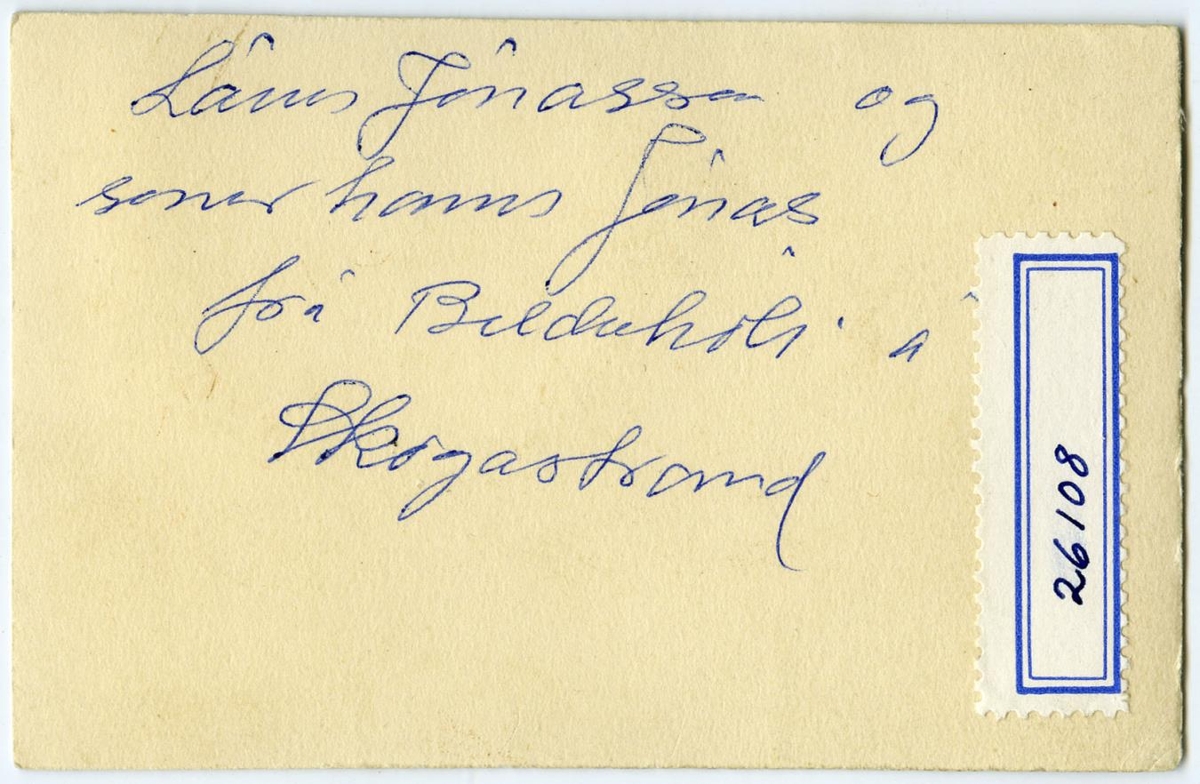 Lárus Jónasson og
sonur hans Jónas
frá Bílduhóli á
Skógaströnd
26108